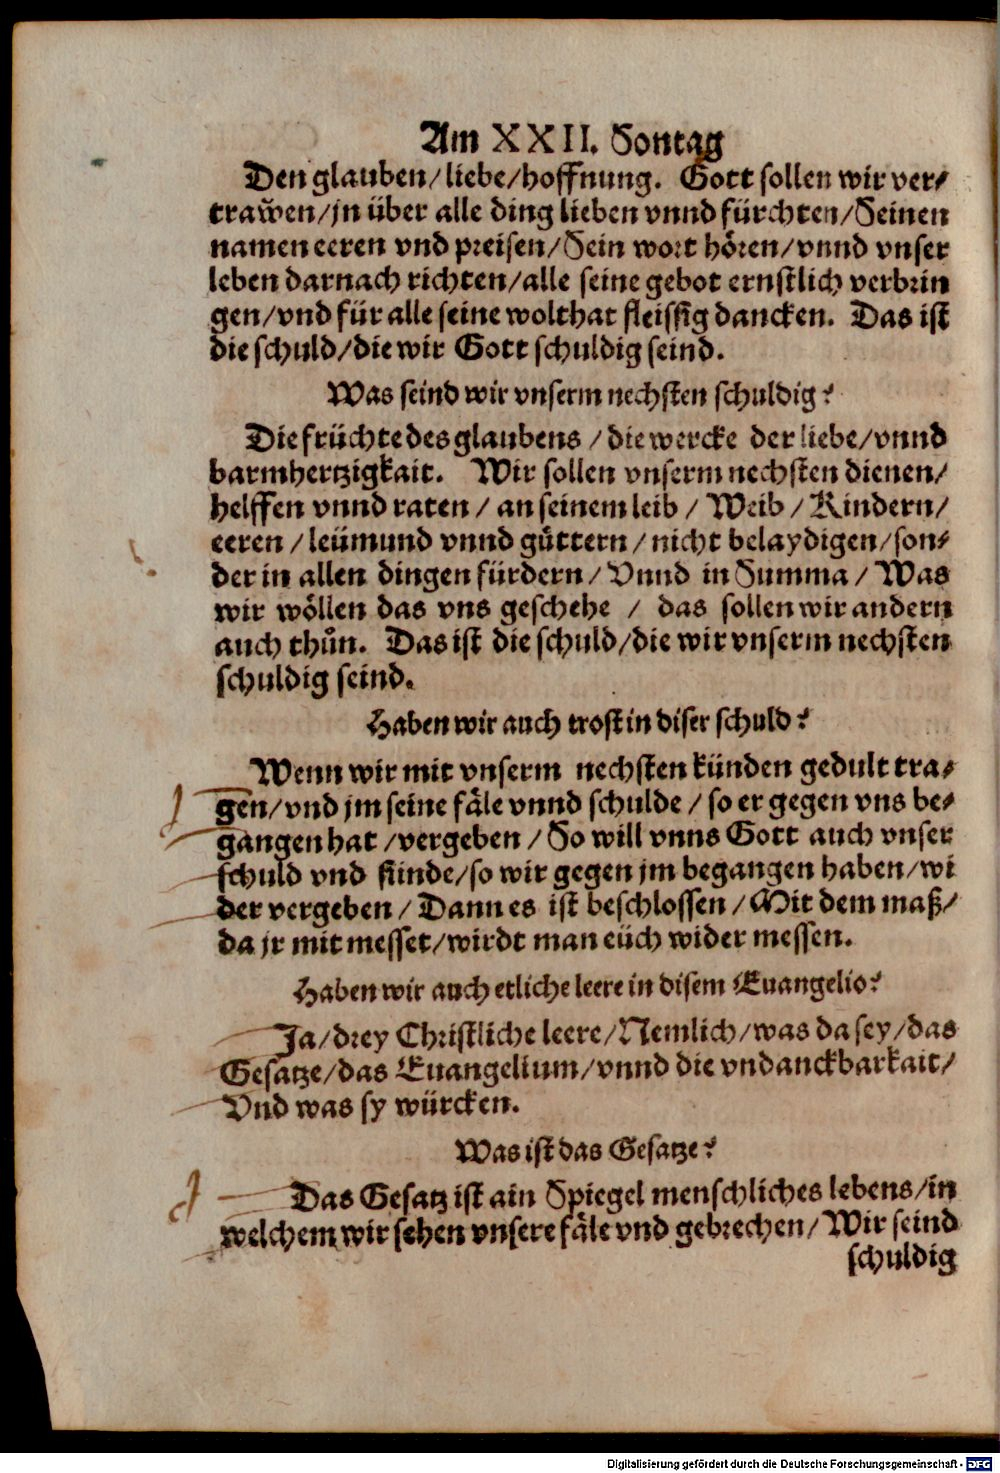 Am XXII. Sontag
Den glauben/liebe/hoffnung. Gott sollen wir ver⸗
trawen/jn über alle ding lieben vnnd fürchten/Seinen
namen eeren vnd preisen/Sein wort hören/vnnd vnser
leben darnach richten/alle seine gebot ernstlich verbrin
gen/vnd für alle seine wolthat fleissig dancken. Das ist
die schuld/die wir Gott schuldig seind.
Was seind wir vnserm nechsten schuldig?
Die früchte des glaubens/die wercke der liebe/vnnd
barmhertzigkait. Wir sollen vnserm nechsten dienen/
helffen vnnd raten/an seinem leib/Weib/Kindern/
eeren/leümund vnnd guͤttern/nicht belaydigen/son⸗
der in allen dingen fürdern/Vnnd in Summa/Was
wir wöllen das vns geschehe/das sollen wir andern
auch thuͦn. Das ist die schuld/die wir vnserm nechsten
schuldig seind.
Haben wir auch trost in diser schuld?
Wenn wir mit vnserm nechsten künden gedult tra⸗
gen/vnd jm seine fäle vnnd schulde/so er gegen vns be⸗
gangen hat/vergeben/So will vnns Gott auch vnser
schuld vnd sünde/so wir gegen jm begangen haben/wi
der vergeben/Dann es ist beschlossen/Mit dem maß/
da jr mit messet/wirdt man eüch wider messen.
Haben wir auch etliche leere in disem Euangelio?
Ja/drey Christliche leere/Nemlich/was da sey/das
Gesatze/das Euangelium/vnnd die vndanckbarkait/
Vnd was sy würcken.
Was ist das Gesatze?
Das Gesatz ist ain Spiegel menschliches lebens/in
welchem wir sehen vnsere fäle vnd gebrechen/Wir seind
schuldig
Digitalisierung gefördert durch die Deutsche Forschungsgemeinschaft - DFG